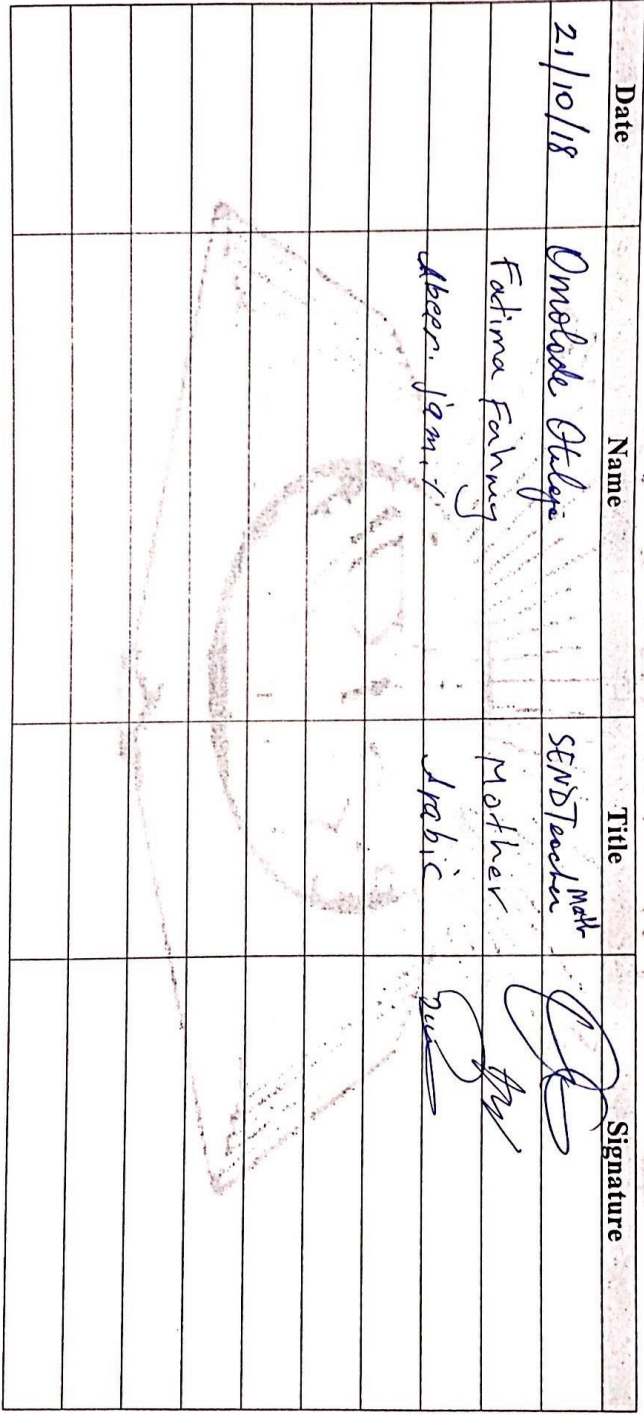 Date Name Title Signature
21/10/18 Omolade SEND Teacher Math
Fatima Fahmy Mother
Abeer. jamil Arabic